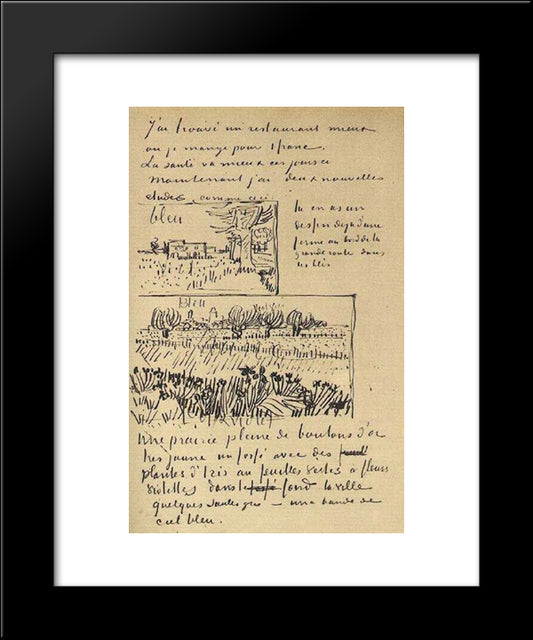 J'ai trouvé un restaurant mieux
ou je mange pour 1 franc.
La santé va mieux ces jours ci
Maintenant j'ai deux nouvelles
etudes comme ceci
bleu
tu en as un
dessin deja d'une
ferme au bord de la
grande route dans
les blés.
Bleu
Violet
Une prairie pleine de boutons d'or
tres jaune un fossé avec des
plantes d'iris au feuilles vertes a fleurs
violettes dans le fossé fond la ville
quelques saules gris – une bande de
ciel bleu.